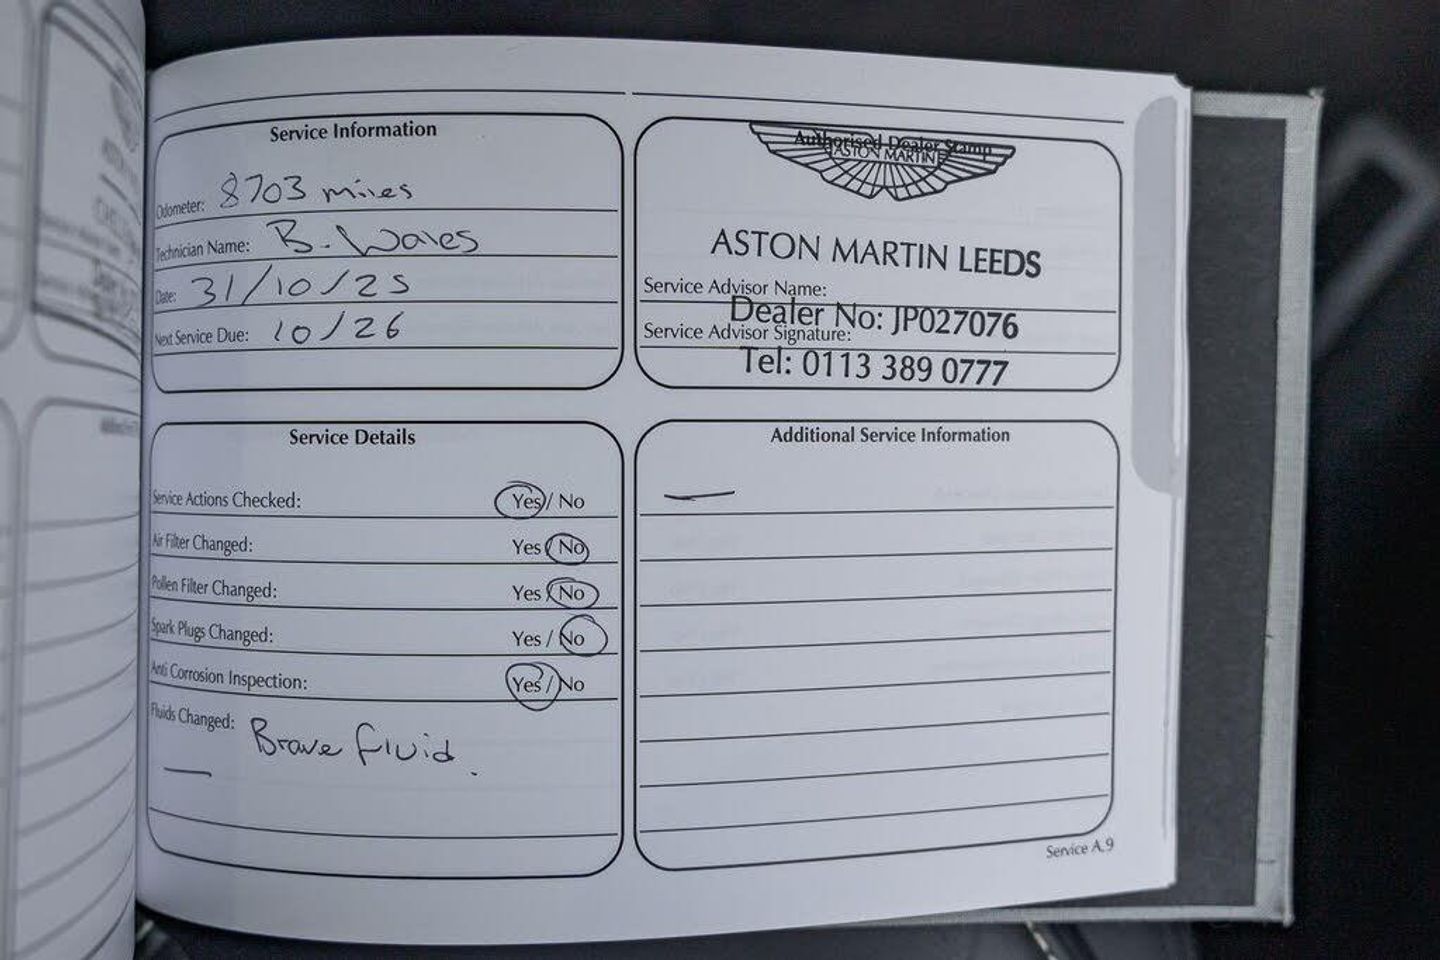 Service Information
Odometer: 8703 miles
Technician Name: B. Wales
Date: 31/10/25
Next Service Due: 10/26
Authorised Dealer Stamp
ASTON MARTIN
ASTON MARTIN LEEDS
Service Advisor Name:
Dealer No: JP027076
Service Advisor Signature:
Tel: 0113 389 0777
Service Details
Service Actions Checked: Yes / No
Air Filter Changed: Yes / No
Pollen Filter Changed: Yes / No
Spark Plugs Changed: Yes / No
Anti Corrosion Inspection: Yes / No
Fluids Changed: Brake fluid.
Additional Service Information
Service A.9